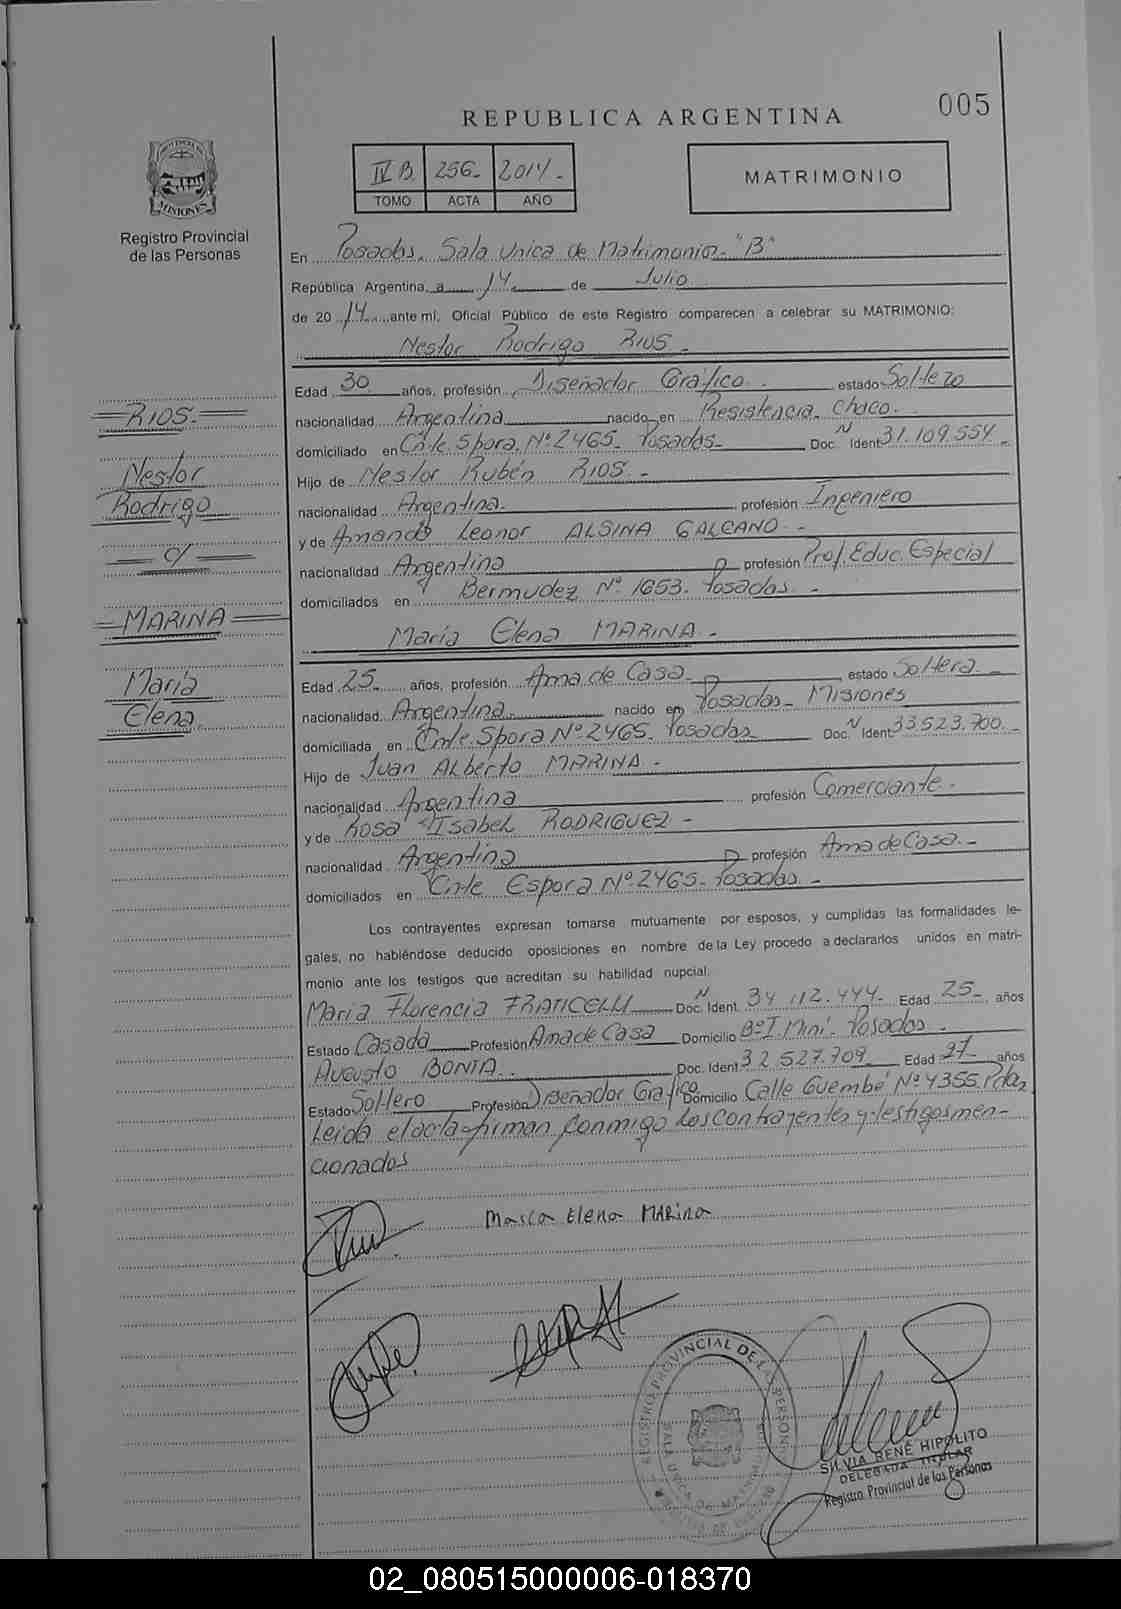 005
REPUBLICA ARGENTINA
IV B. 256- 2014-
TOMO ACTA AÑO
MATRIMONIO
PROVINCIA DE
MISIONES
Registro Provincial
de las Personas
En Posadas. Sala Unica de Matrimonios- "B"
República Argentina, a 14 de Julio
de 20 14 ante mí, Oficial Público de este Registro comparecen a celebrar su MATRIMONIO:
Nestor Rodrigo RIOS-
Edad 30 años, profesión Diseñador Gráfico. estado Soltero
nacionalidad Argentina nacido en Resistencia. Chaco.
domiciliado en Cnte. Spora. Nº 2465- Posadas- Doc. N Ident 31.109.554-
Hijo de Nestor Rubén RIOS-
nacionalidad Argentina. profesión Ingeniero
y de Amanda Leonor ALSINA GALEANO-
nacionalidad Argentina profesión Prof. Educ. Especial
domiciliados en Bermudez Nº 1653. Posadas-
María Elena MARINA-
Edad 25- años, profesión Ama de Casa- estado Soltera-
nacionalidad Argentina. nacido en Posadas- Misiones
domiciliada en Cnte. Spora Nº 2465. Posadas Doc. N Ident 33.523.700-
Hijo de Juan Alberto MARINA-
nacionalidad Argentina profesión Comerciante-
y de Rosa Isabel RODRIGUEZ-
nacionalidad Argentina profesión Ama de Casa-
domiciliados en Cnte Espora Nº 2465- Posadas-
Los contrayentes expresan tomarse mutuamente por esposos, y cumplidas las formalidades le-
gales, no habiéndose deducido oposiciones en nombre de la Ley procedo a declararlos unidos en matri-
monio ante los testigos que acreditan su habilidad nupcial.
Maria Florencia FRATICELLI Doc. N Ident. 34.112.444- Edad 25- años
Estado Casada Profesión Ama de Casa Domicilio Bº I. Mini- Posadas-
Augusto BONIA. Doc. Ident 32.527.709 Edad 27 años
Estado Soltero Profesión Diseñador Gráfico Domicilio Calle Guembé Nº 4355. Pdas
Leida el acta firman conmigo los contrayentes y testigos men-
cionados
RIOS-
Nestor
Rodrigo
c/
MARINA
María
Elena.
María Elena MARINA
REGISTRO PROVINCIAL DE LAS PERSONAS
SALA UNICA DE MATRIMONIOS
SILVIA RENÉ HIPOLITO
DELEGADA TITULAR
Registro Provincial de las Personas
02_080515000006-018370